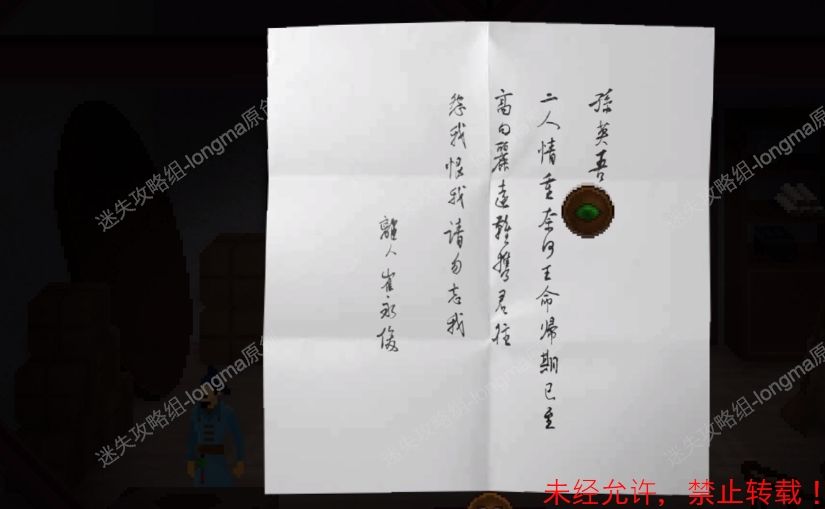 孫英吾
二人情重奈何王命歸期已至
高句麗遠難攜君往
怨我恨我請勿忘我
離人崔永俊
迷失攻略组-longma原创
迷失攻略组-longma原创
迷失攻略组-longma原创
迷失攻略组-longma原创
迷失攻略组-longma原创
迷失攻略组-longma原创
未经允许，禁止转载！